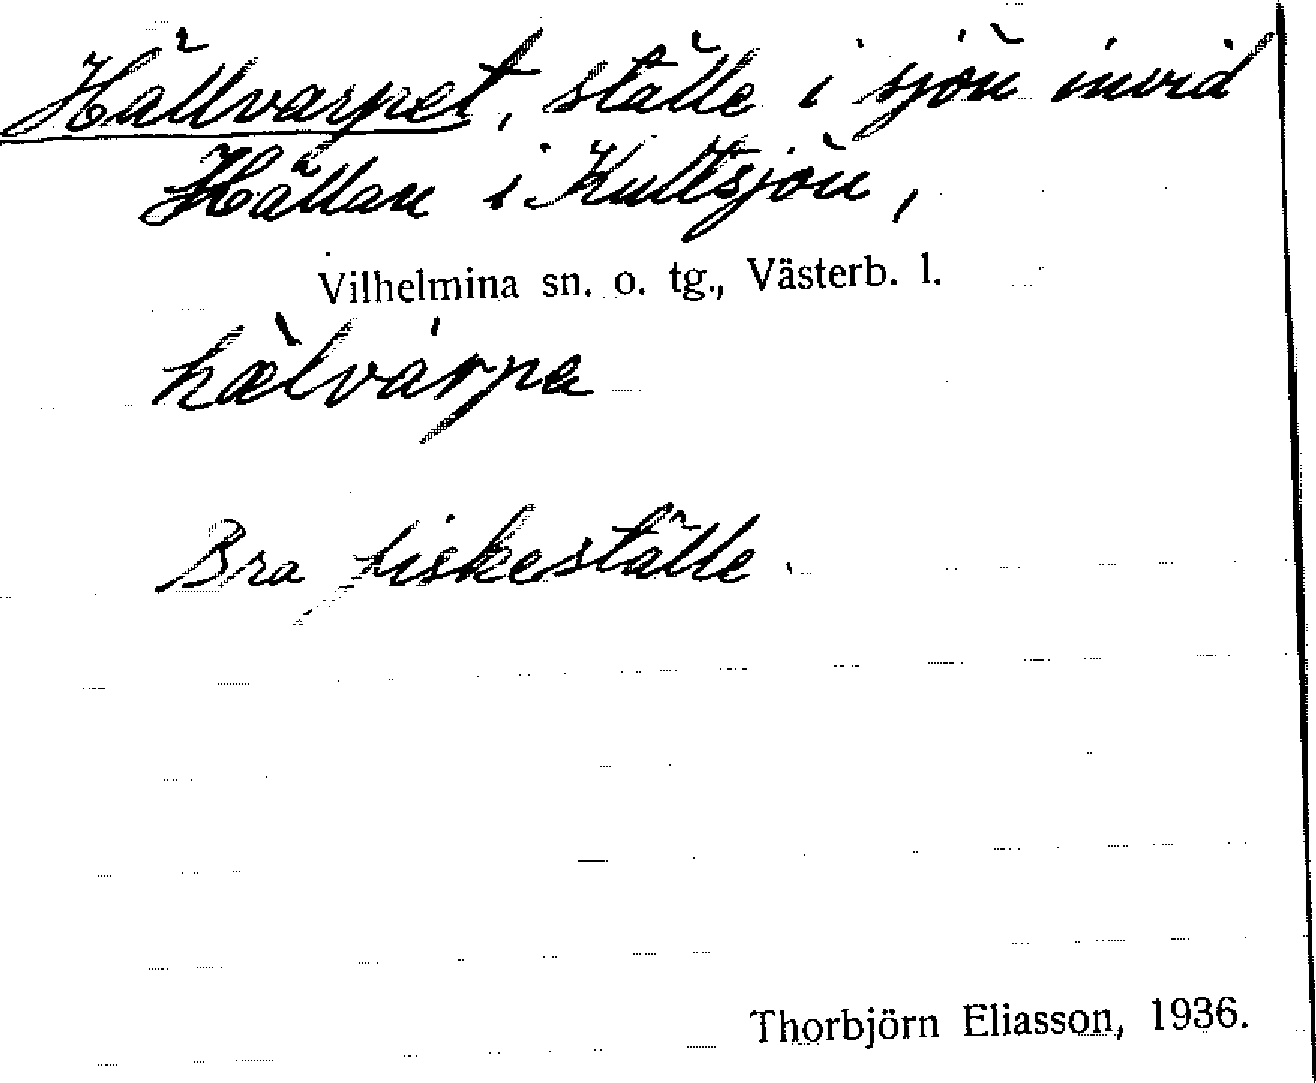 Hällvarpet, ställe i sjön invid
Hällan i Kultsjön,
Vilhelmina sn. o. tg., Västerb. l.
hæ̀lvárpa
Bra fiskeställe.
Thorbjörn Eliasson, 1936.